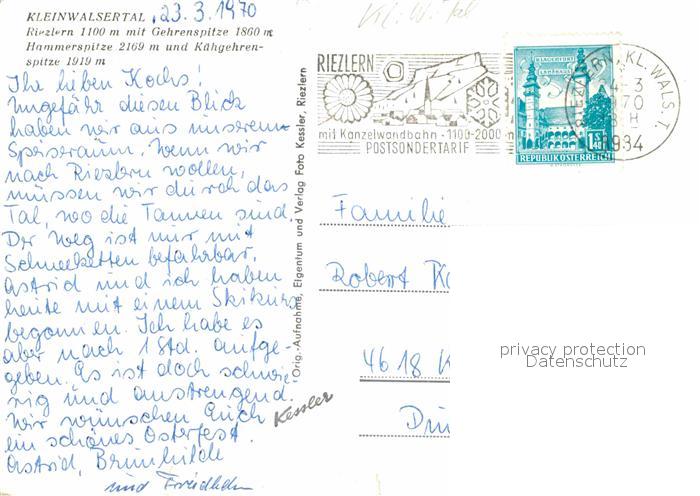 KLEINWALSERTAL
23. 3. 1970
Kl. W. tal
Riezlern 1100 m mit Gehrenspitze 1860 m
Hammerspitze 2169 m und Kühgehren-
spitze 1919 m
Ihr lieben Kochs!
Ungefähr diesen Blick
haben wir aus unserem
Speiseraum. Wenn wir
nach Riezlern wollen,
müssen wir durch das
Tal, wo die Tannen sind.
Der Weg ist nur mit
Schneeketten befahrbar.
Astrid und ich haben
heute mit einem Skikurs
begonnen. Ich habe es
aber nach 1 Std. aufge-
geben. Es ist doch schwie-
rig und anstrengend.
Wir wünschen Euch
ein schönes Osterfest
Astrid, Brunhilde
und Friedhelm
Kessler
Orig.-Aufnahme, Eigentum und Verlag Foto Kessler, Riezlern
RIEZLERN
mit Kanzelwandbahn - 1100-2000 m
POSTSONDERTARIF
RIEZLERN, KL. WALS. T.
6934
KLAGENFURT
LANDHAUS
1S40
REPUBLIK ÖSTERREICH
Familie
Robert K
4618 K
privacy protection
Datenschutz